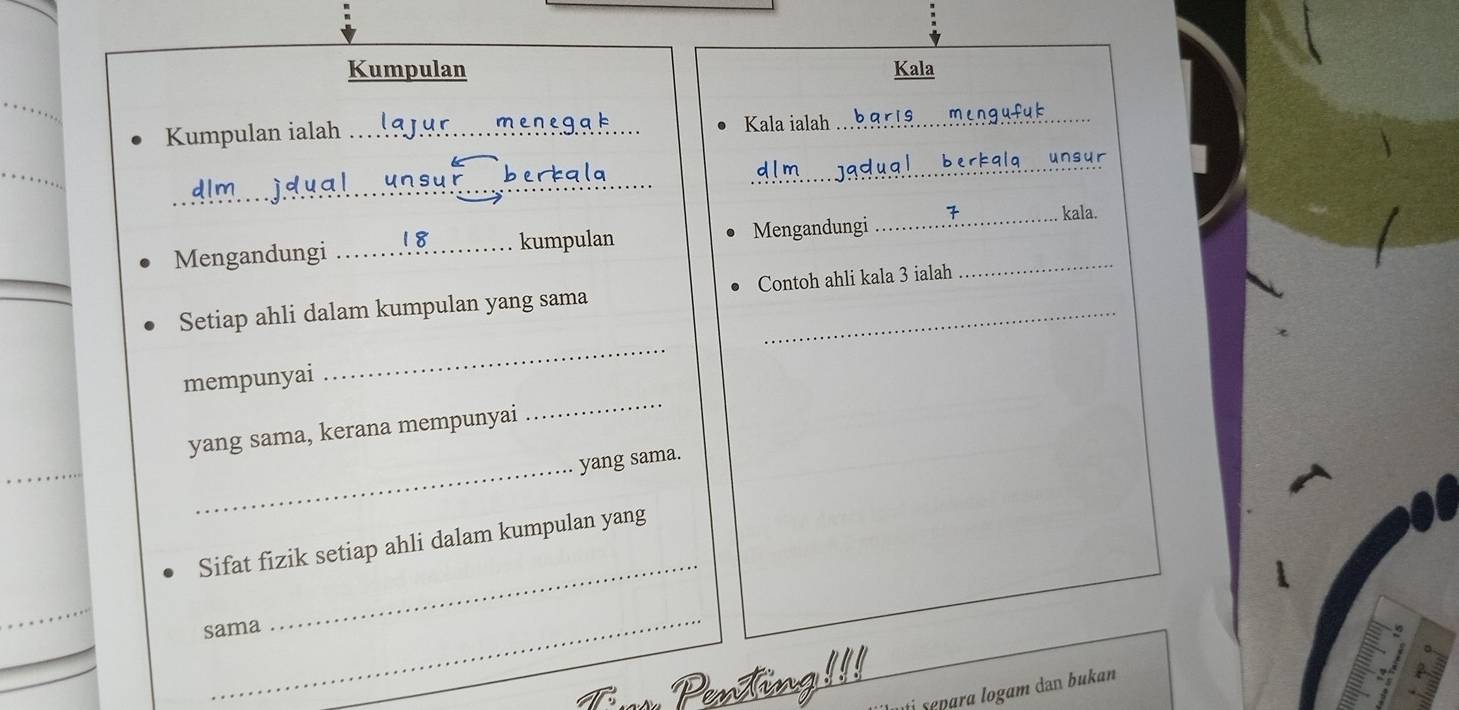 Kumpulan
Kumpulan ialah lajur menegak
dlm jdual unsur berkala
Mengandungi 18 kumpulan
Setiap ahli dalam kumpulan yang sama
mempunyai
yang sama, kerana mempunyai
yang sama.
Sifat fizik setiap ahli dalam kumpulan yang
sama
Kala
Kala ialah baris mengufuk
dlm jadual berkala unsur
Mengandungi 7 kala.
Contoh ahli kala 3 ialah
Penting!!!
separa logam dan bukan